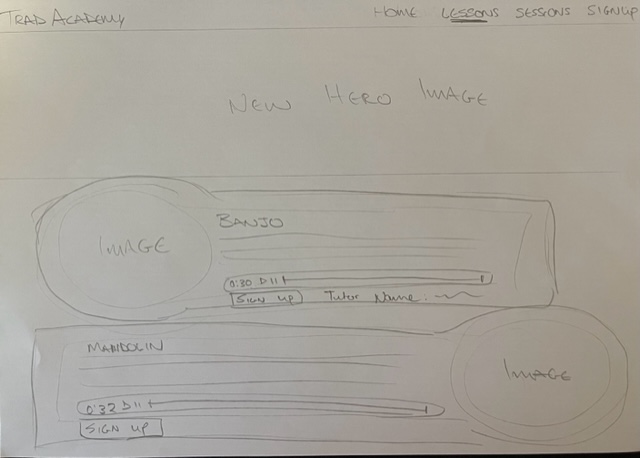 TRAD ACADEMY
HOME LESSONS SESSIONS SIGNUP
NEW HERO IMAGE
IMAGE
BANJO
0:30
SIGN UP Tutor Name:
MANDOLIN
IMAGE
0:32
SIGN UP